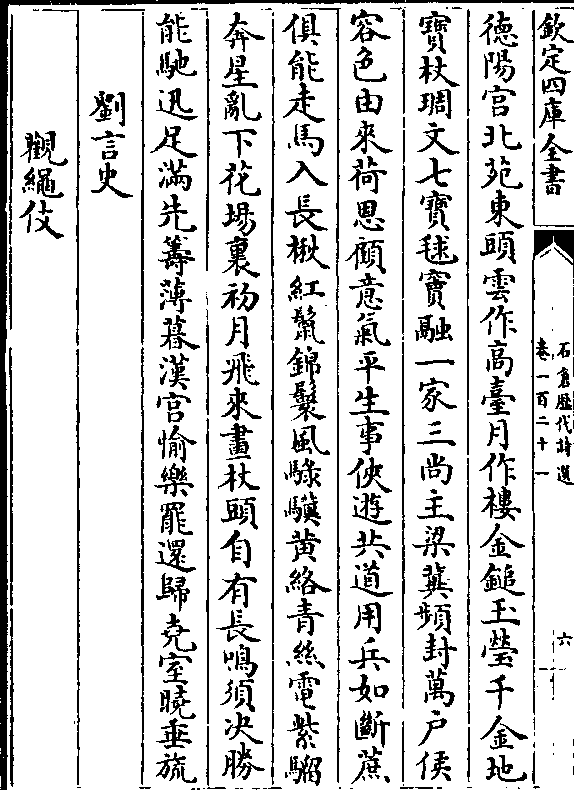 欽定四庫全書
石倉歷代詩選
卷一百二十一
六
德陽宫北苑東頭雲作高臺月作樓金鎚玉瑩千金地
寳杖琱文七寳毬竇融一家三尚主梁冀頻封萬户侯
容色由來荷恩顧意氣平生事俠遊共道用兵如斷蔗
俱能走馬入長楸紅鬛錦鬉風騄驥黄絡青絲電紫騮
奔星亂下花塲裏初月飛來畫杖頭自有長鳴須决勝
能馳迅足滿先籌薄暮漢宫愉樂罷還歸堯室曉垂旒
劉言史
觀繩伎